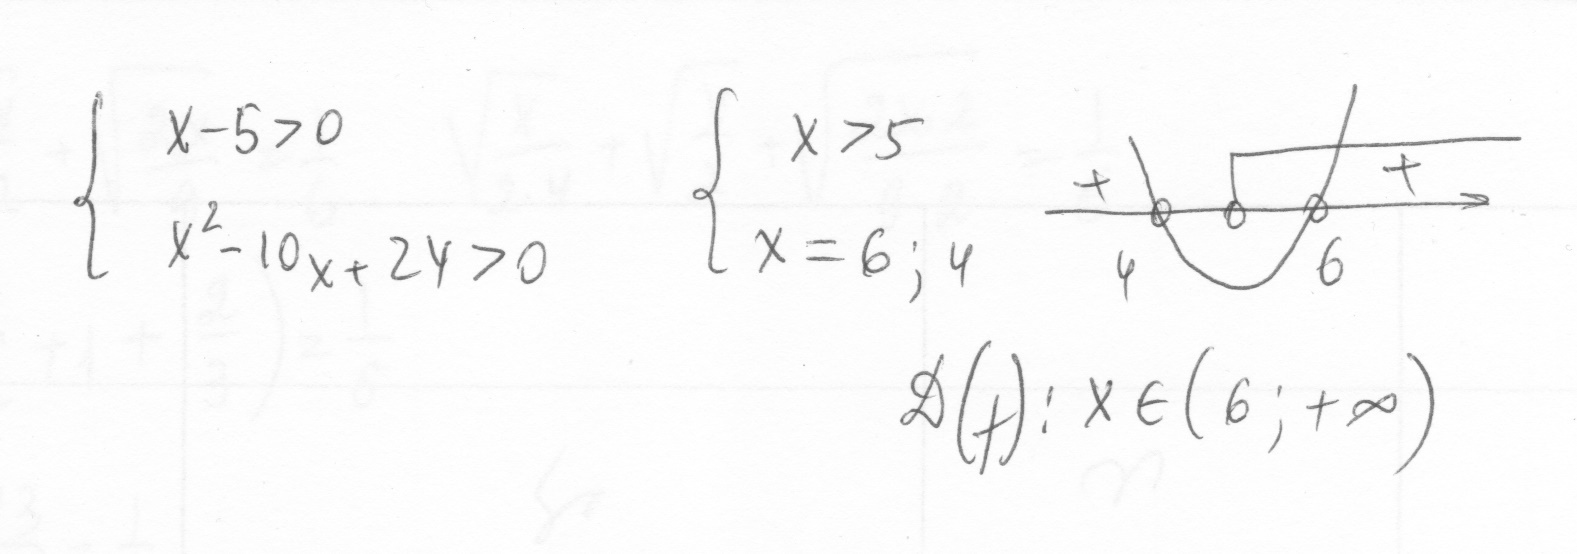 x-5>0
x²-10x+24>0
x>5
x=6;4
+ +
4 6
D(f): x∈(6;+∞)